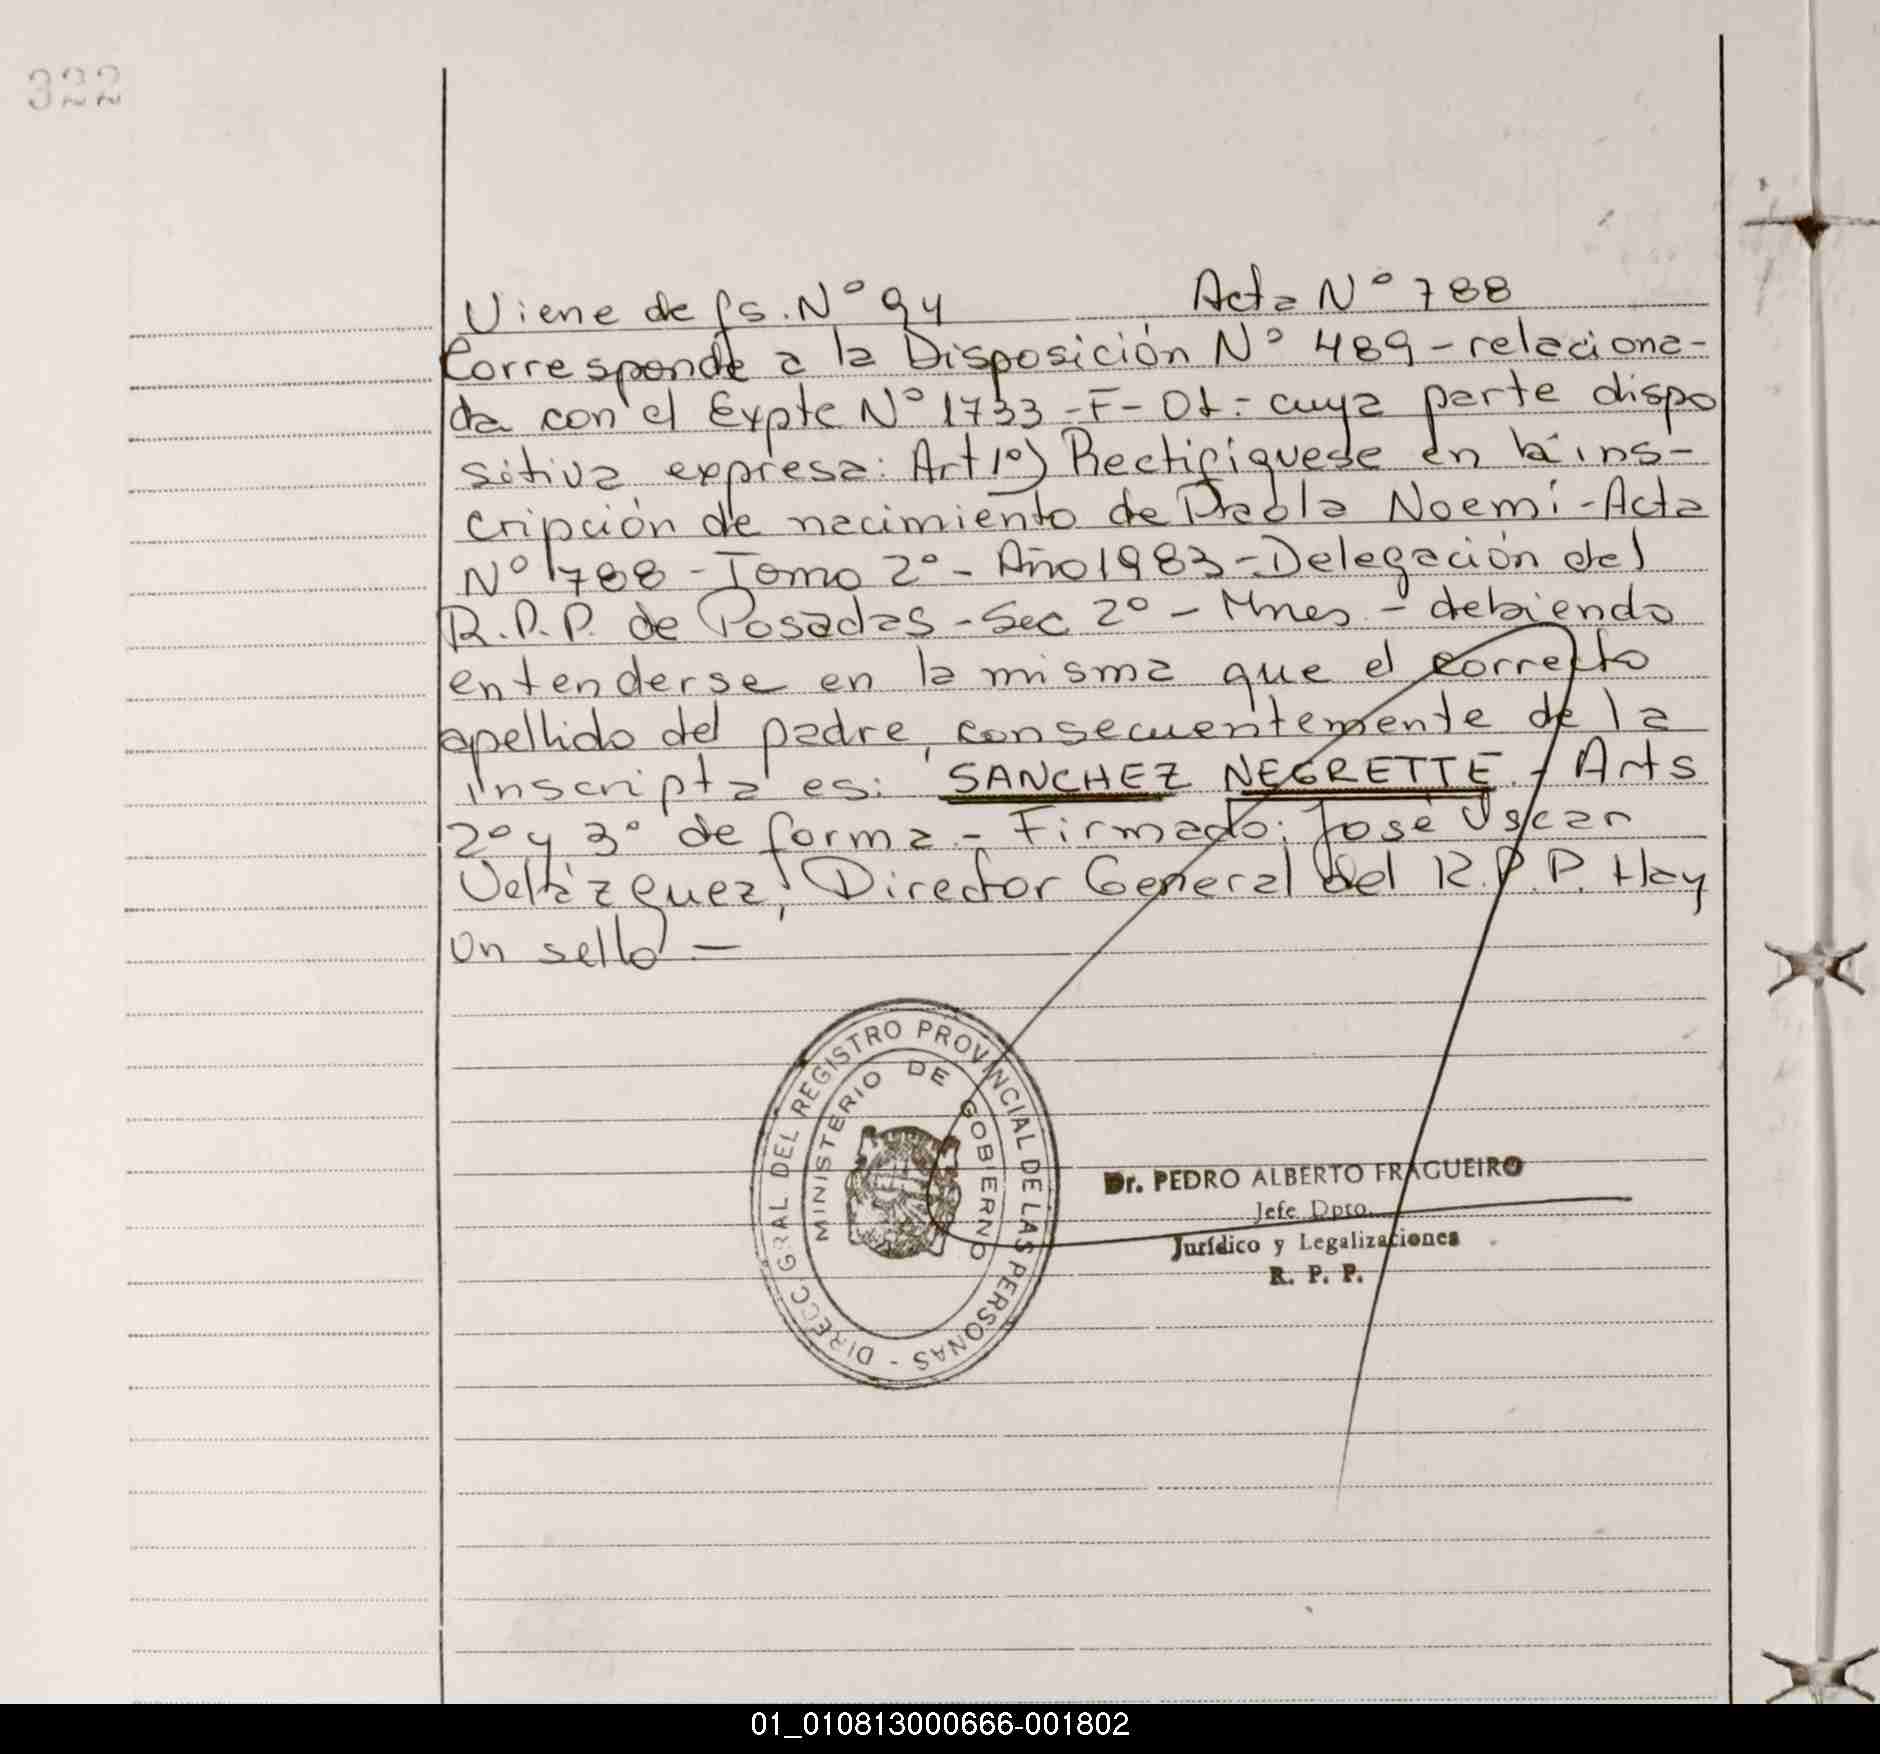 322
Viene de fs. Nº 94 Acta Nº 788
Corresponde a la Disposición Nº 489 - relaciona-
da con el Expte Nº 1733 - F - 01 - cuya parte dispo
sitiva expresa: Art 1º) Rectifíquese en la ins-
cripción de nacimiento de Paola Noemí - Acta
Nº 788 - Tomo 2º - Año 1983 - Delegación del
R.P.P. de Posadas - Sec 2º - Mnes - debiendo
entenderse en la misma que el correcto
apellido del padre, consecuentemente de la
inscripta es: SANCHEZ NEGRETTE. - Arts
2º y 3º de forma. - Firmado: José Oscar
Velázquez, Director General del R.P.P. Hay
un sello —
DIRECC GRAL DEL REGISTRO PROVINCIAL DE LAS PERSONAS -
MINISTERIO DE GOBIERNO
Dr. PEDRO ALBERTO FRAGUEIRO
Jefe Dpto.
Jurídico y Legalizaciones
R. P. P.
01_010813000666-001802